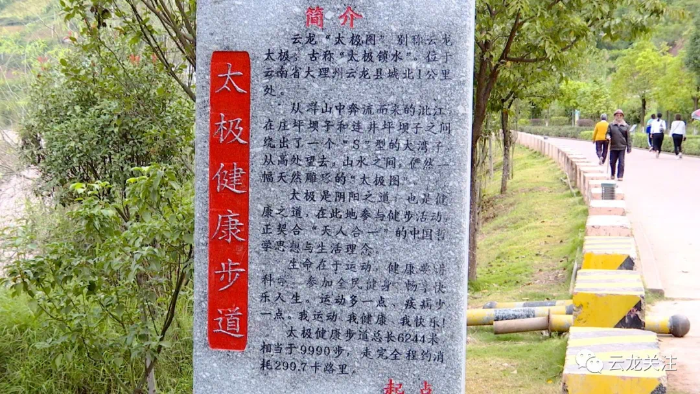 太极健康步道
简介
云龙“太极图”别称云龙
太极，古称“太极锁水”，位于
云南省大理州云龙县城北1公里
处。
从群山中奔流而来的沘江
在庄坪坝子和连井坪坝子之间
绕出了一个“S”型的大湾子，
从高处望去，山水之间，俨然一
幅天然雕琢的“太极图”。
太极是阴阳之道，也是健
康之道，在此地参与健步活动，
正契合“天人合一”的中国哲
学思想与生活理念。
生命在于运动，健康要讲
科学。参加全民健身，畅享快
乐人生。运动多一点、疾病少
一点、我运动、我健康、我快乐！
太极健康步道总长6244米
相当于9990步，走完全程约消
耗299.7卡路里。
起点
云龙关注